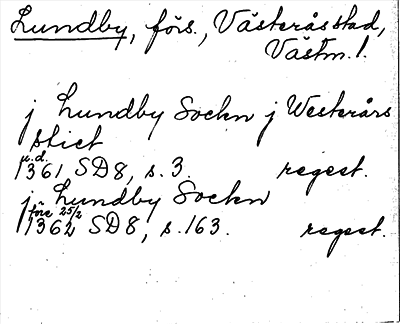 Lundby, förs., Västerås stad,
Västm. l.
j Lundby Sockn j Westerårs
stict
u.d.
1361 SD8, s. 3. regest.
j Lundby Sockn
före 25/2
1362 SD8, s. 163. regest.